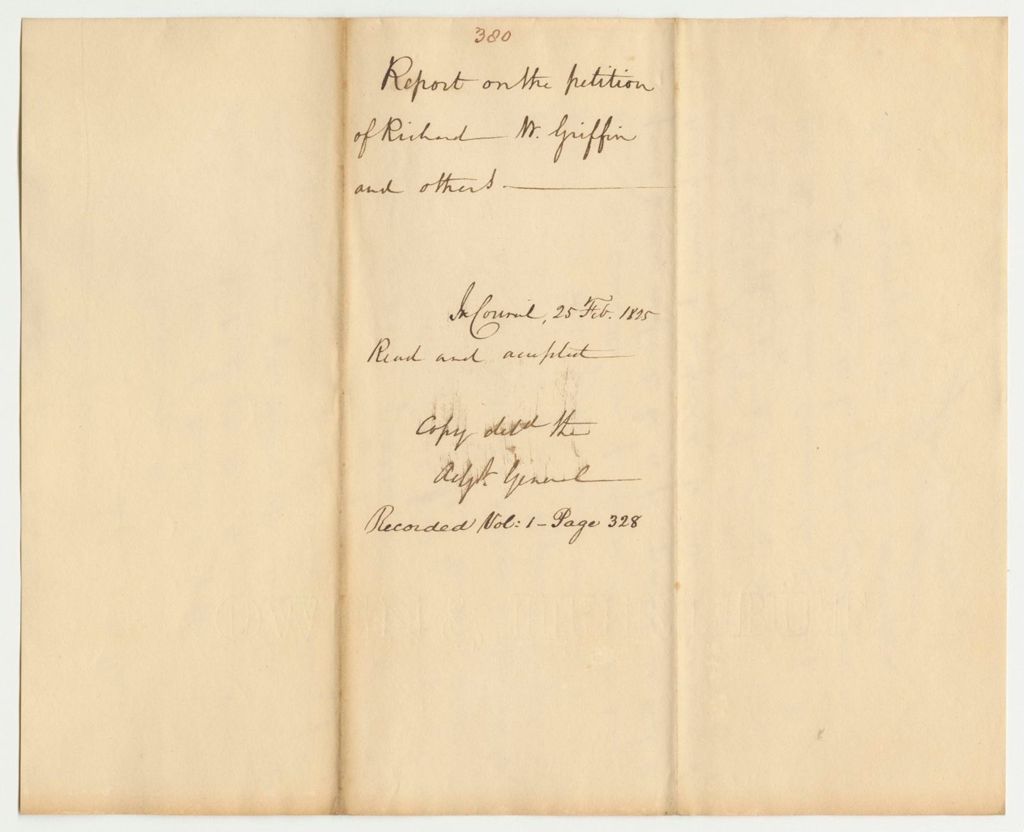 380
Report on the petition
of Richard W. Griffin
and others.
In Council, 25 Feb. 1825
Read and accepted
Copy deld the
Adgt. General
Recorded Vol: 1 - Page 328